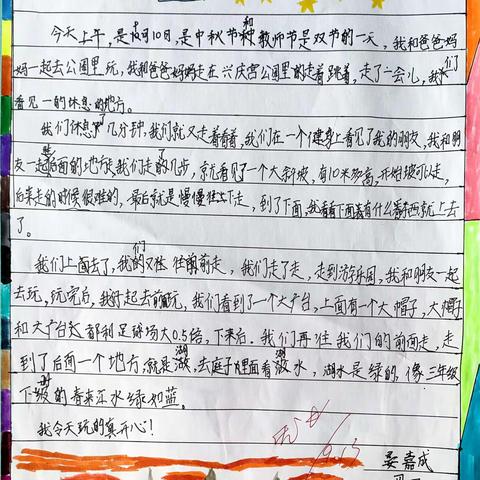 今天上午，是九月10日，是中秋节和教师节是双节的一天，我和爸爸妈
妈一起去公园里玩，我和爸爸妈妈走在兴庆宫公里的走着跳着，走了一会儿，我们
看见一的休息的地方。
我们休息了几分钟，我们就又走着看着，我们在一个身上看见了我的朋友，我和朋
友一起后面的地方我们走了几步，就看见了一个大斜坡，有10米多高，开始坡可以走，
后来走的时候很难的，最后就是慢慢往上下走，到了下面，我看看下面有什么东西就上去
了。
我们上面去了，我们又往前走，我们走了走，走到游乐园，我和朋友一起
去玩，玩完后，我好起去前玩，我们看到了一个大广台，上面有一个大帽子，大帽子
和大广台都和足球场大0.5倍，下来后，我们再往我们的前面走，走
到了后面一个地方，就是湖，去庭子里面看湖水，湖水是绿的，像三年级
下册的春来江水绿如蓝。
我今天玩的真开心！
9.13
晏嘉成